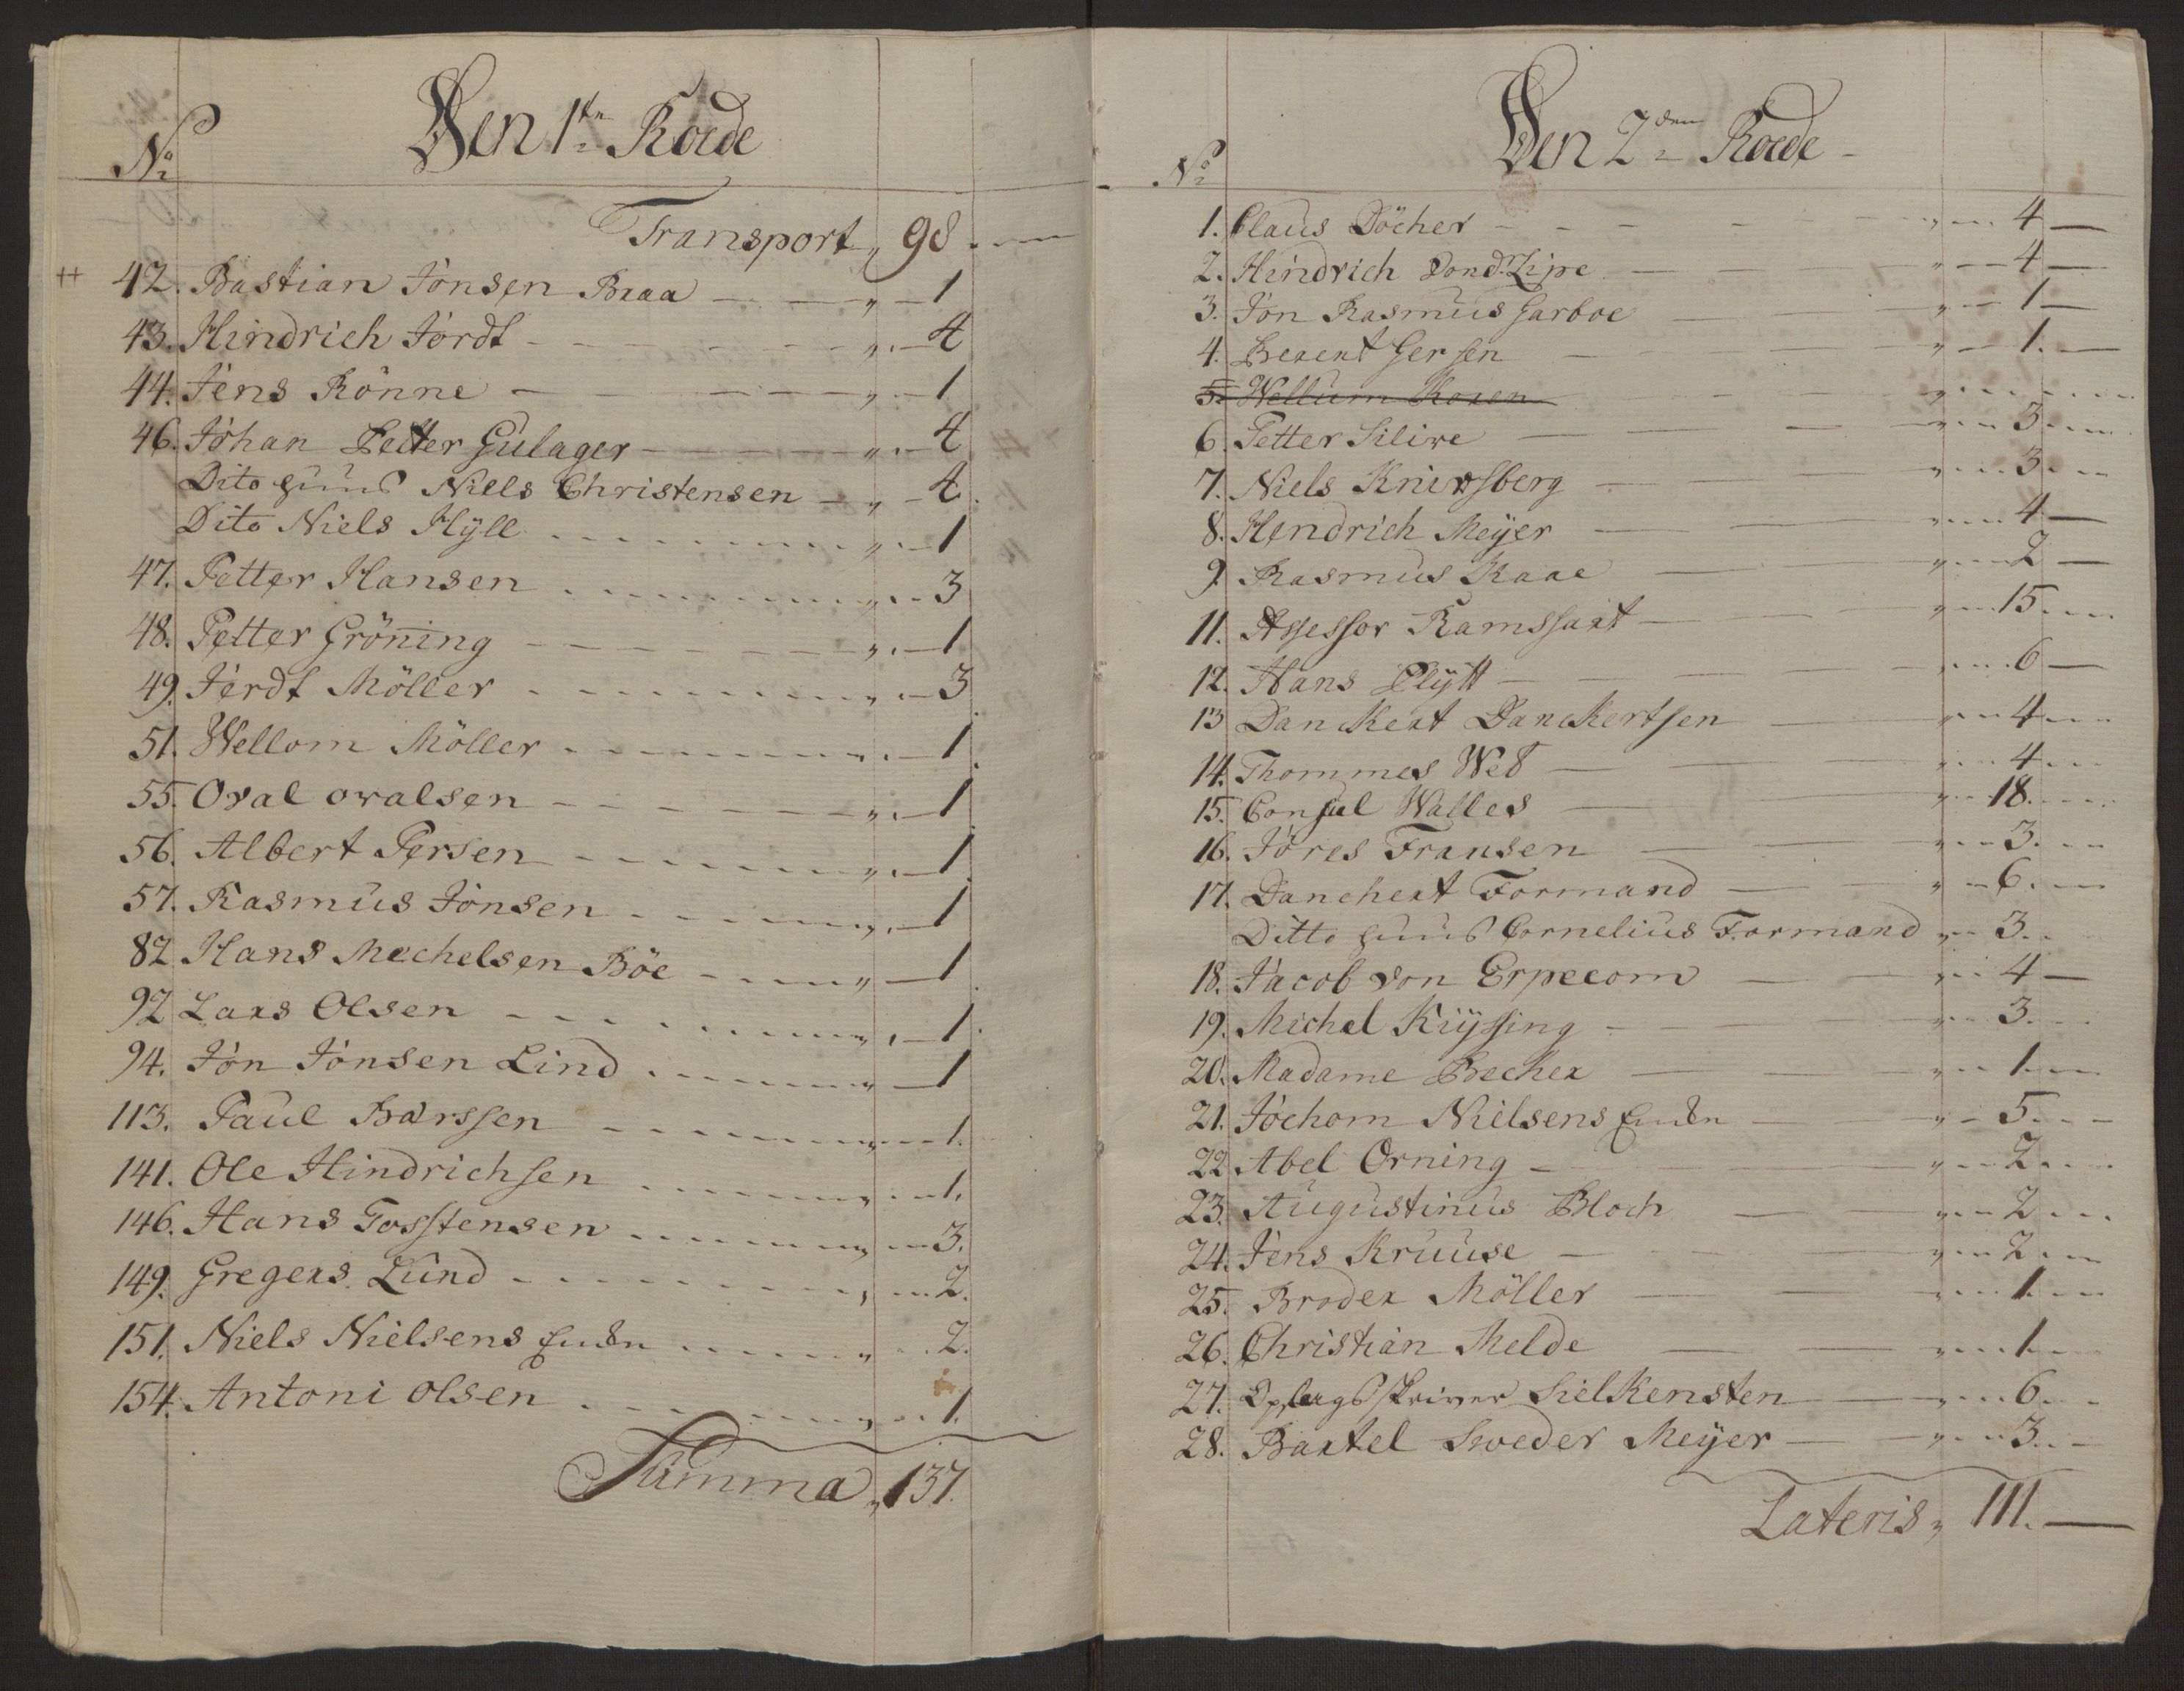 Den 1ten Roede
No
Transport „ 98
++ 42. Bastian Jönsen Braa „ 1
43. Hindrich Jördt „ 4
44. Jens Rönne „ 1
46. Johan Petter Gulager „ 4
Dito huus Niels Christensen „ 4
Dito Niels Hÿll „ 1
47. Petter Hansen „ 3
48. Petter Gröning „ 1
49. Jerdt Möller „ 3
51. Wellom Möller „ 1
55. Oval ovalsen „ 1
56. Albert Persen „ 1
57. Rasmus Jönsen „ 1
82 Hans Mechelsen Böe „ 1
92 Lars Olsen „ 1
94. Jön Jönsen Lind „ 1
113. Paul Barssen „ 1.
141. Ole Hindrichsen „ 1.
146. Hans Tosstensen „ 3.
149. Gregers Lund „ 2.
151. Niels Nielsens Enken „ 2.
154. Antoni olsen „ 1.
Summa „ 137.
Den 2den Roede
No
1. Claus Döcher „ 4
2. Hindrich Vond. Lipe „ 4
3. Jon Rasmus Garboe „ 1
4. Berent Gersen „ 1.
5. Wellum Koren „
6. Petter Silive „ 3
7. Niels Knirssberg „ 3
8. Hendrich Meÿer „ 4
9 Rasmus Kaae „ 2
11. Assessor Ramssart „ 15
12. Hans Plÿtt „ 6
13 Danckert Danckertsen „ 4
14. Thommes Web „ 4
15. Consul Walles „ 18.
16. Jöres Fransen „ 3.
17. Danchert Formand „ 6.
Ditto huus Cornelius Formand „ 3.
18. Jacob von Erpecom „ 4
19. Michel Küÿssing „ 3.
20. Madame Becher „ 1
21. Jöchom Nielsens Enken „ 5
22 Abel Orning „ 2
23. Augustinus Bloch „ 2
24. Jens Kruuse „ 2
25. Broder Möller „ 1
26. Christian Melde „ 1
27. Opsagsskriver Sielkensten „ 6.
28. Bartel Sweder Meÿer „ 3.
Lateris „ 111.